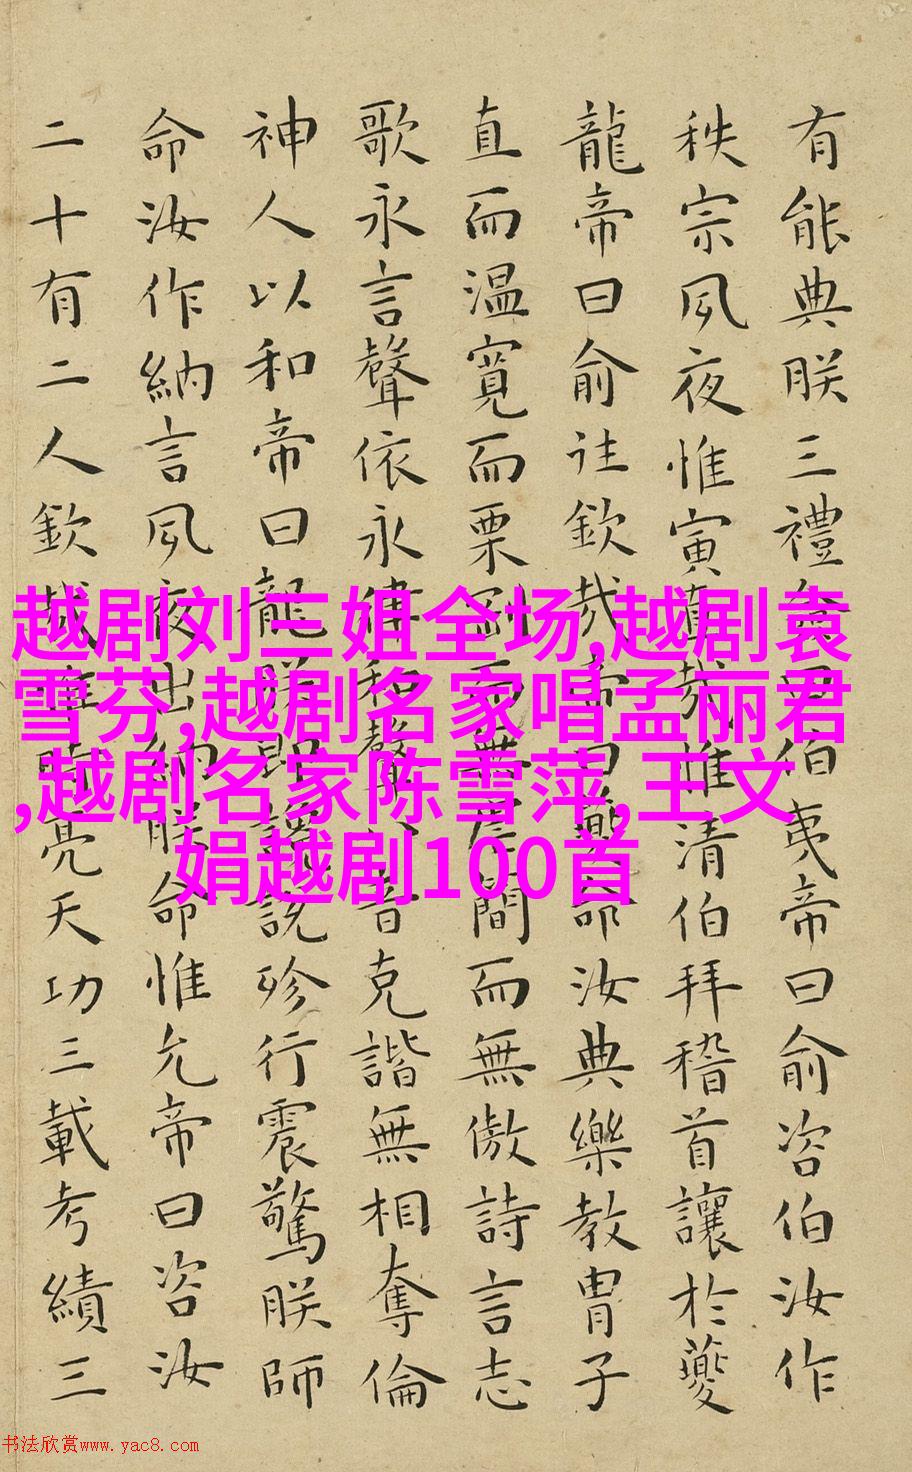 有能典朕三禮僉曰伯夷帝曰俞咨伯汝作
秩宗夙夜惟寅直哉惟清伯拜稽首讓於夔
龍帝曰俞往欽哉帝曰夔命汝典樂教胄子
直而温寬而栗剛而無虐簡而無傲詩言志
歌永言聲依永律和聲八音克諧無相奪倫
神人以和帝曰龍朕堲讒說殄行震驚朕師
命汝作納言夙夜出納朕命惟允帝曰咨汝
二十有二人欽哉惟時亮天功三載考績三
越剧刘三姐全场,越剧袁
雪芬,越剧名家唱孟丽君
,越剧名家陈雪萍,王文
娟越剧100首
书法欣赏www.yac8.com